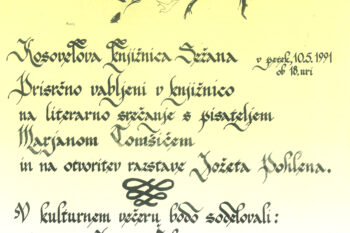 Kosovelova knjižnica Sežana v petek, 10.5.1991
ob 18. uri
Prisrčno vabljeni v knjižnico
na literarno srečanje s pisateljem
Marjanom Tomšičem
in na otvoritev razstave Jožeta Pohlena.
V kulturnem večeru bodo sodelovali: